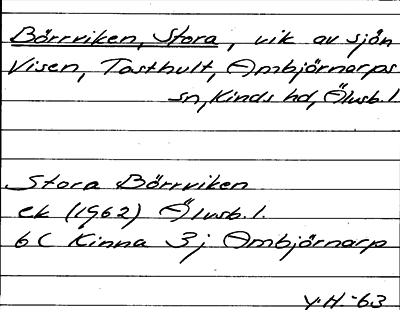 Börrviken, Stora, vik av sjön
Visen, Tasthult, Ambjörnarps
sn, Kinds hd, Älvsb. l
Stora Börrviken
ek (1962) Älvsb. l.
6 C Kinna 3 j Ambjörnarp
Y.H. -63